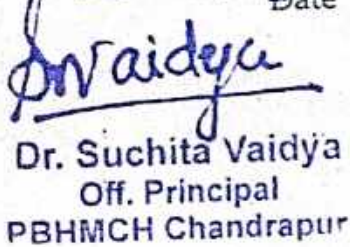 Date
SVaidya
Dr. Suchita Vaidya
Off. Principal
PBHMCH Chandrapur